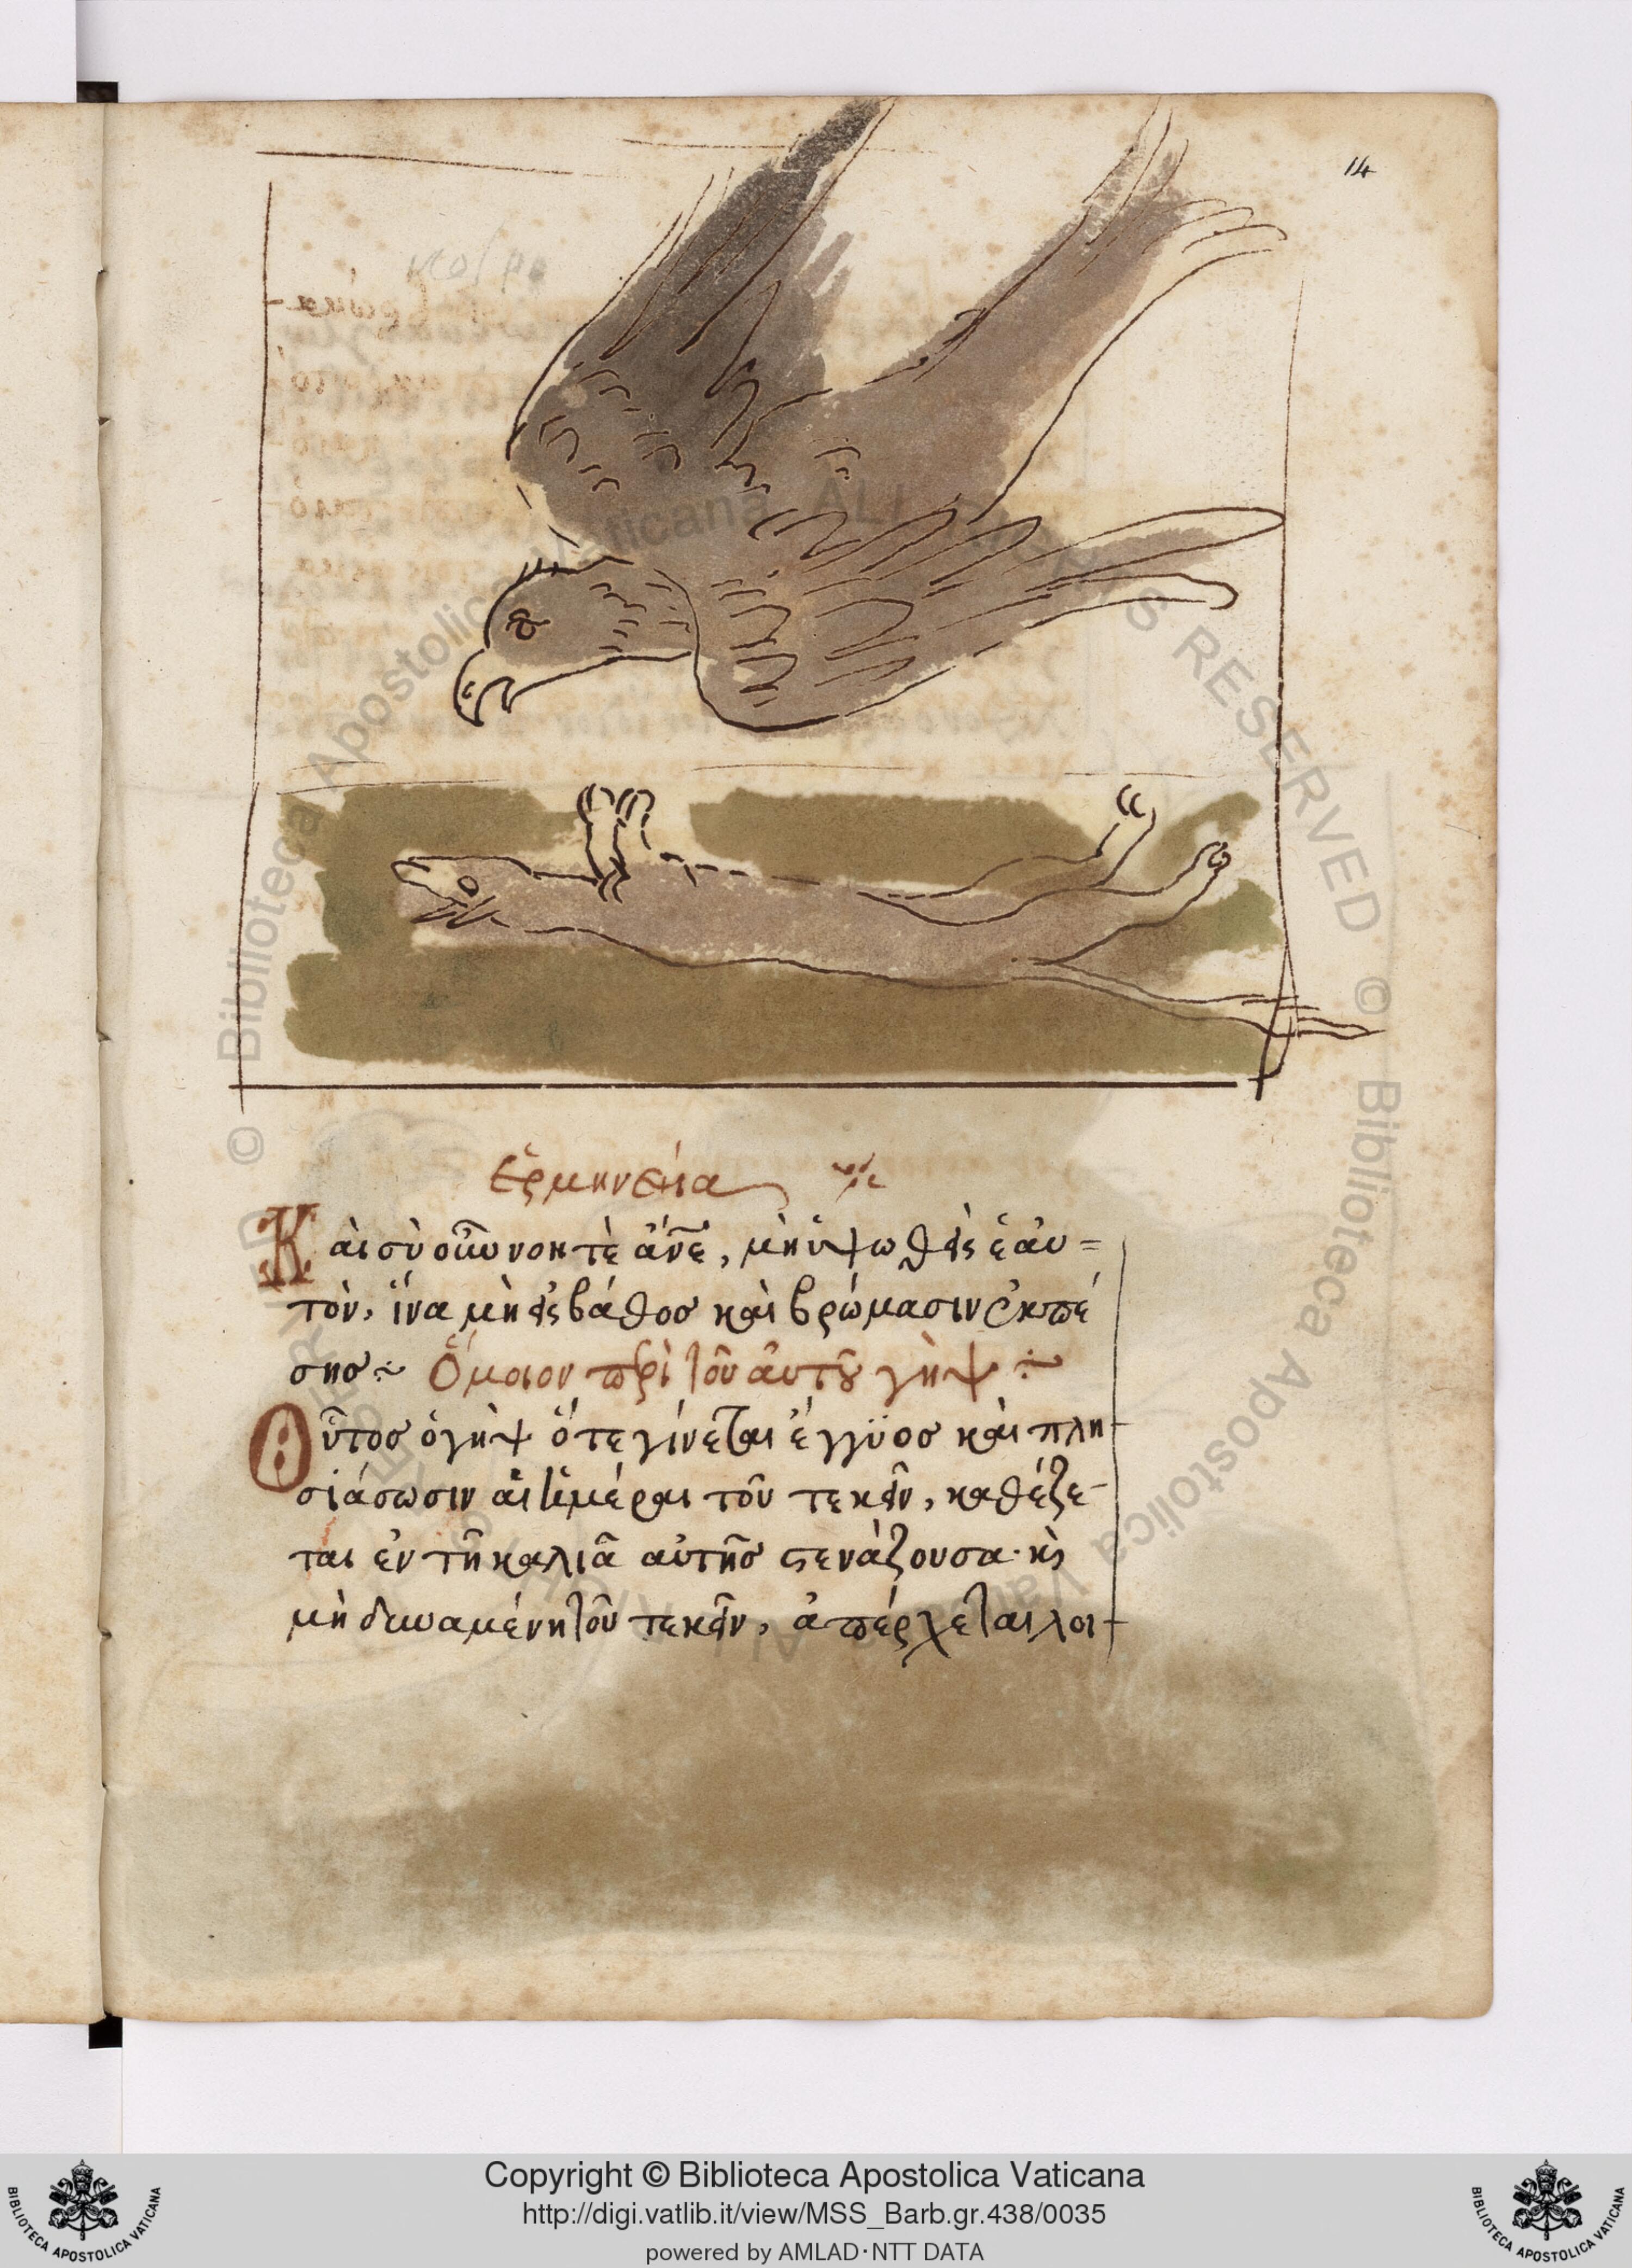 14
Ἑρμηνεία
Καὶ σὺ οὖν νοητὲ ἄνε, μὴ ὑψωθῆς ἑαυ=
τὸν, ἵνα μὴ εἰς βάθος καὶ βρώμασιν ἐκπέ
σης ~ Ὅμοιον περὶ τοῦ αὐτοῦ γὴψ ÷
Οὗτος ὁ γὴψ ὅτε γίνεται ἔγγϋος καὶ πλη-
σιάσωσιν αἱ ἡμέραι τοῦ τεκεῖν, καθέζε-
ται ἐν τῆ καλιᾶ αὐτῆς στενάζουσα· κὶ
μὴ δυναμένη τοῦ τεκεῖν, ἀπέρχεται λοι-
Copyright © Biblioteca Apostolica Vaticana
http://digi.vatlib.it/view/MSS_Barb.gr.438/0035
powered by AMLAD·NTT DATA
BIBLIOTECA APOSTOLICA VATICANA
BIBLIOTECA APOSTOLICA VATICANA
© Biblioteca Apostolica Vaticana ALL RIGHTS RESERVED
© Biblioteca Apostolica Vaticana ALL RIGHTS RESERVED